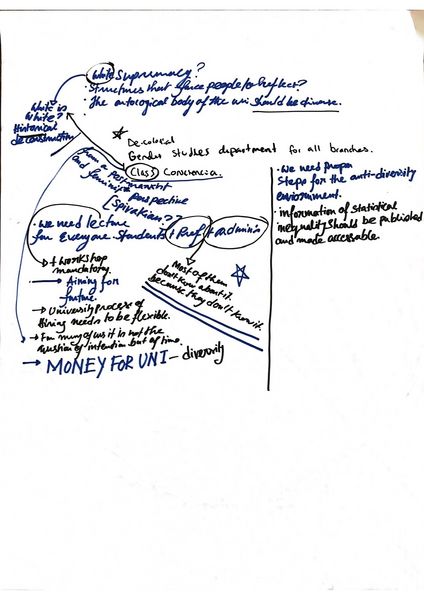 White supremacy?
Structures that force people to reflect?
The ontological body of the uni should be diverse.
What is
White?
Historical
deconstruction
Decolonial
Gender Studies department for all branches.
Class Conscencia.
from a restaurant
and feminist perspective
[Spivakian??
• we need lecture
for Everyone. Students + Prof + admin's
+ workshop
mandatory.
→ Aiming for
future.
→ University process of
Hiring needs to be flexible.
→ For many of us it is not the
question of intention but of time.
→ MONEY FOR UNI - diversity
Most of them
don't know about it.
because they don't know it.
• we need proper
Steps for the anti-diversity
environment.
• information of statistical
inequality should be published
and made accessable.